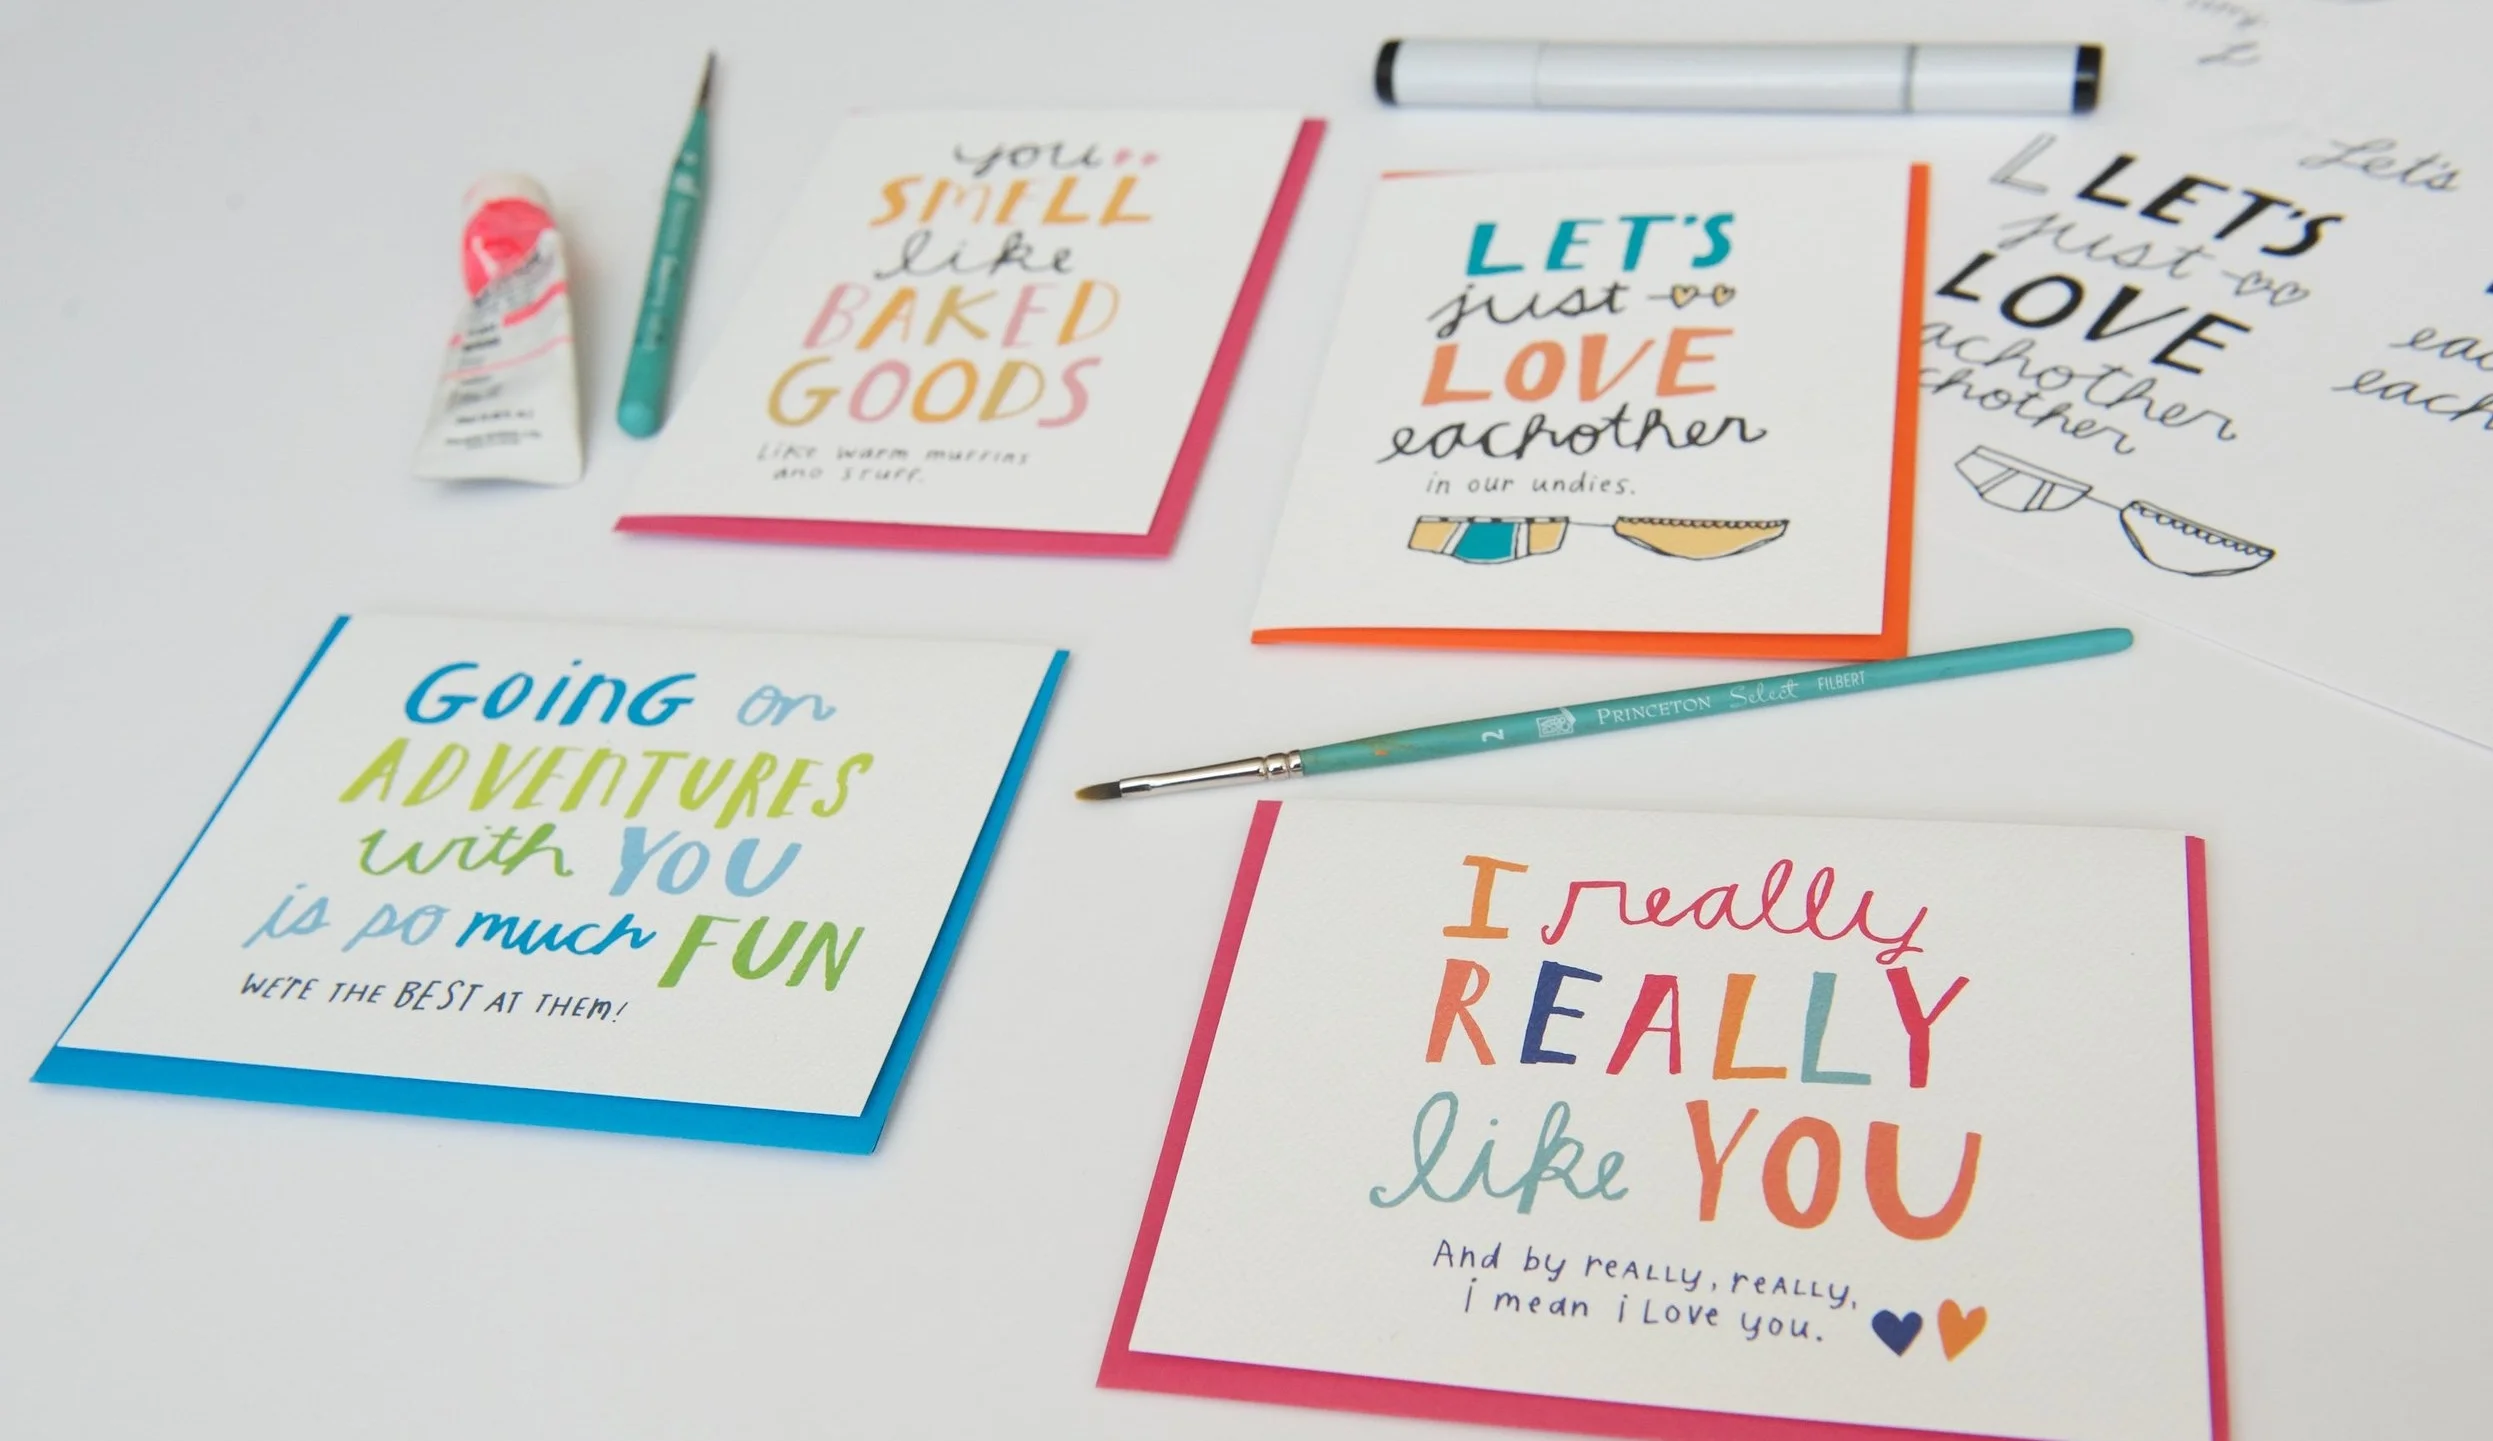 you
SMELL
like
BAKED
GOODS
Like warm muffins
and stuff.
LET'S
just
LOVE
eachother
in our undies.
L LET'S
just
LOVE
eachother
eachother
Let's
each
GOING on
ADVENTURES
with YOU
is so much FUN
WE'RE THE BEST AT THEM!
2 PRINCETON Select FILBERT
I really
REALLY
like YOU
And by reALLy, reALLy,
i mean i Love you.